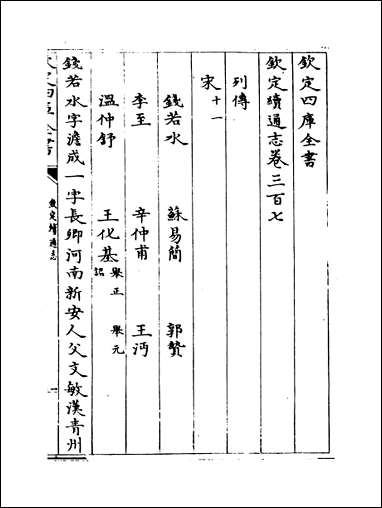 欽定四庫全書
欽定續通志卷三百七
列傳
宋十一
錢若水　蘇易簡　郭贄
李至　辛仲甫　王沔
溫仲舒　王化基舉正　舉元　詔
錢若水字澹成一字長卿河南新安人父文敏漢青州
欽定續通志
一